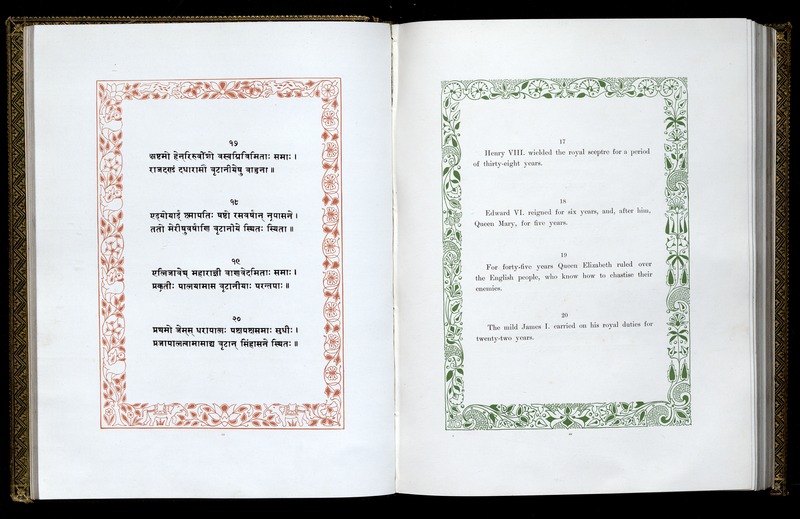 १७
अष्टमो हेनरिरुर्वीशो वस्वग्निविमिताः समाः ।
राजदण्डं दधारासौ वृटानीयेषु वाङ्मना ॥
१८
एड्मोयार्ड् क्ष्मापतिः षष्ठो रसवर्षान् नृपासने ।
ततो मेरीषुवर्षाणि वृटानीये स्थितः स्थिता ॥
१९
एलिजाबेथ् महाराज्ञी वाणवेदमिताः समाः ।
प्रकृतीः पालयामास वृटानीयाः परन्तपाः ॥
२०
प्रथमो जेमस् धरापालः सुधीः ।
प्रजापालत्वमासाद्य वृटान् सिंहासने स्थितः ॥
17
Henry VIII. wielded the royal sceptre for a period
of thirty-eight years.
18
Edward VI. reigned for six years, and, after him,
Queen Mary, for five years.
19
For forty-five years Queen Elizabeth ruled over
the English people, who know how to chastise their
enemies.
20
The mild James I. carried on his royal duties for
twenty-two years.